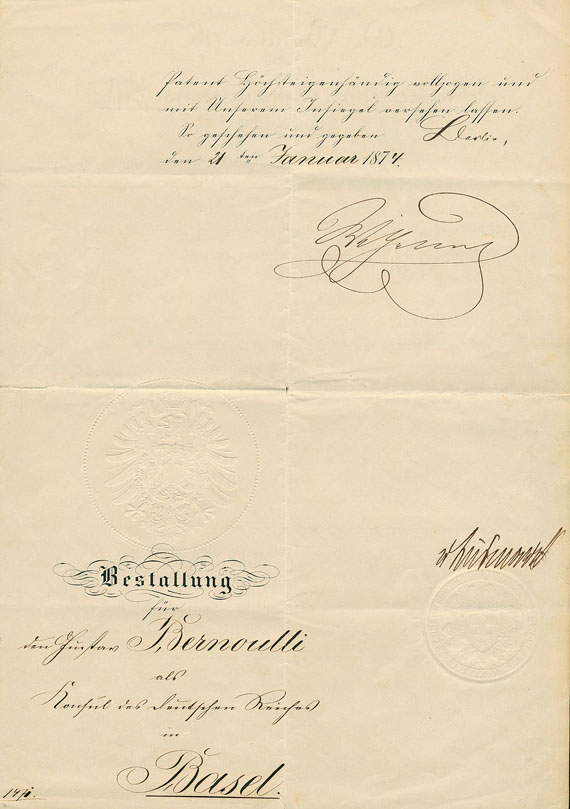 Patent Höchsteigenhändig vollzogen und
mit Unserem Insiegel versehen lassen.
So geschehen und gegeben Berlin,
den 21ten Januar 1874.
Wilhelm
v Bismarck
Bestallung
für
den Gustav Bernoulli
als
Konsul des Deutschen Reiches
in
Basel.